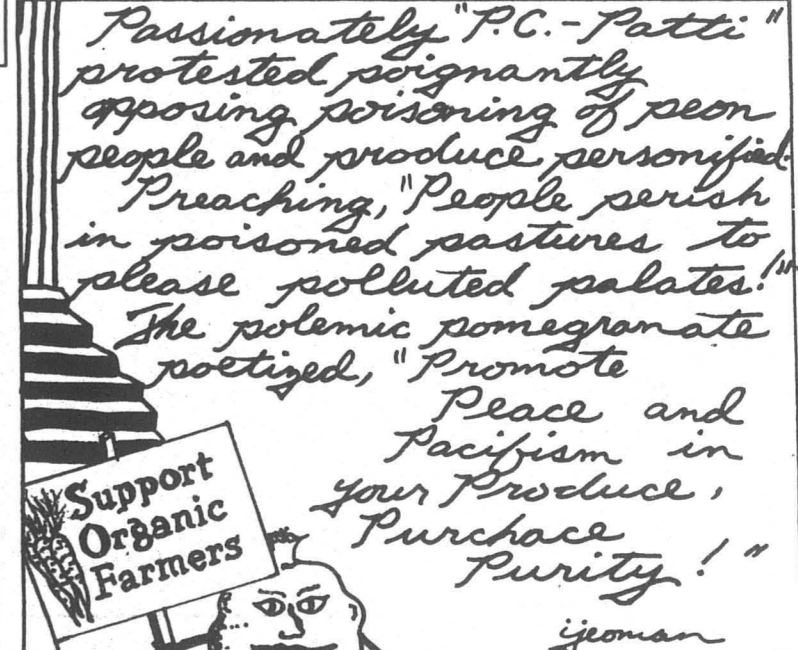 Passionately "P.C.-Patti"
protested poignantly
opposing poisoning of peon
people and produce personified.
Preaching, "People perish
in poisoned pastures to
please polluted palates!"
The polemic pomegranate
poetized, "Promote
Peace and
Pacifism in
your Produce,
Purchace
Purity!"
Support
Organic
Farmers
ijeoman